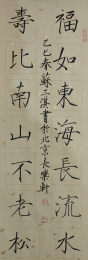 福如東海長流水
壽比南山不老松
乙巳春蘇三漢書於北京長樂軒